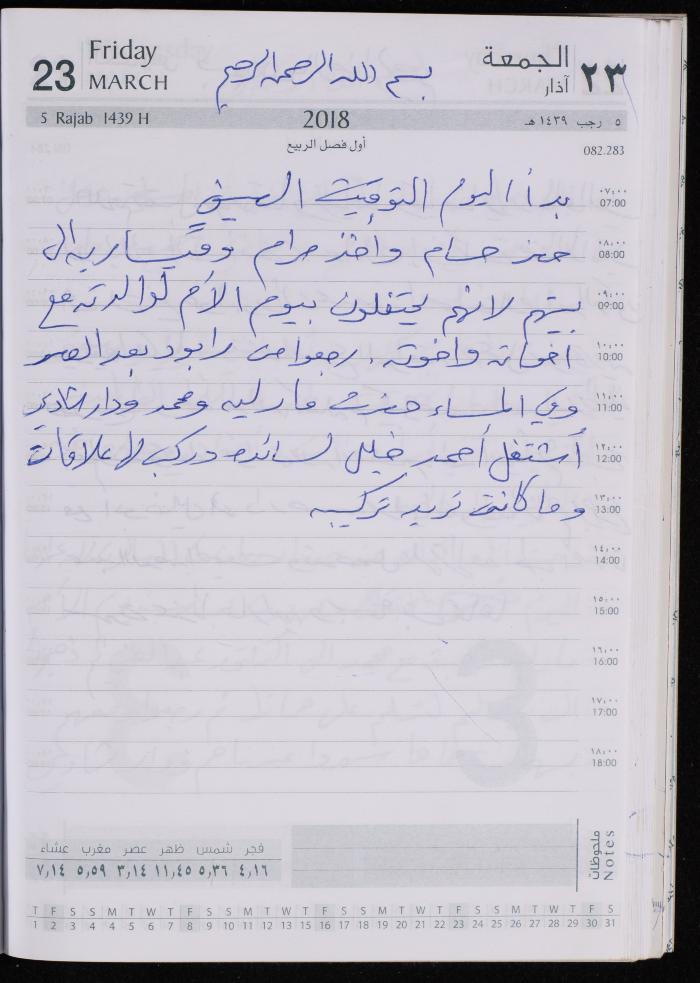 23 Friday MARCH
بسم الله الرحمن الرحيم
الجمعة ٢٣ آذار
5 Rajab 1439 H
2018
٥ رجب ١٤٣٩ هـ
أول فصل الربيع
082.283
بدأ اليوم التوقيت الصيفي
٠٧:٠٠ 07:00
حضر حسام واخذ مرام وقيسارية الى
٠٨:٠٠ 08:00
بيتهم لانهم يحتفلون بيوم الأم لوالدته مع
٠٩:٠٠ 09:00
اخوانه واخوته. رجعوا من رابود بعد العصر
١٠:٠٠ 10:00
وفي المساء حضرت مارليه ومحمد ودار
١١:٠٠ 11:00
أشتغل أحمد خليل لسانده وركب لها علاقات
١٢:٠٠ 12:00
وما كانت تريد تركيبه
١٣:٠٠ 13:00
١٤:٠٠ 14:00
١٥:٠٠ 15:00
١٦:٠٠ 16:00
١٧:٠٠ 17:00
١٨:٠٠ 18:00
ملحوظات Notes
فجر شمس ظهر عصر مغرب عشاء
٤,١٦ ٥,٣٦ ١١,٤٥ ٣,١٤ ٥,٥٩ ٧,١٤
T F S S M T W T F S S M T W T F S S M T W T F S S M T W T F S
1 2 3 4 5 6 7 8 9 10 11 12 13 14 15 16 17 18 19 20 21 22 23 24 25 26 27 28 29 30 31